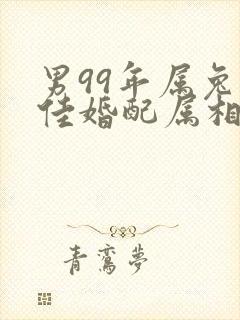 男99年属兔
佳婚配属相
青鸾夢